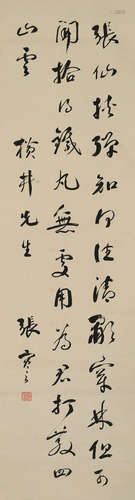 張仙挾彈知何往清嘯穿林但可
聞拾得鐵丸無處用為君打散四
山雲
橫井先生 張